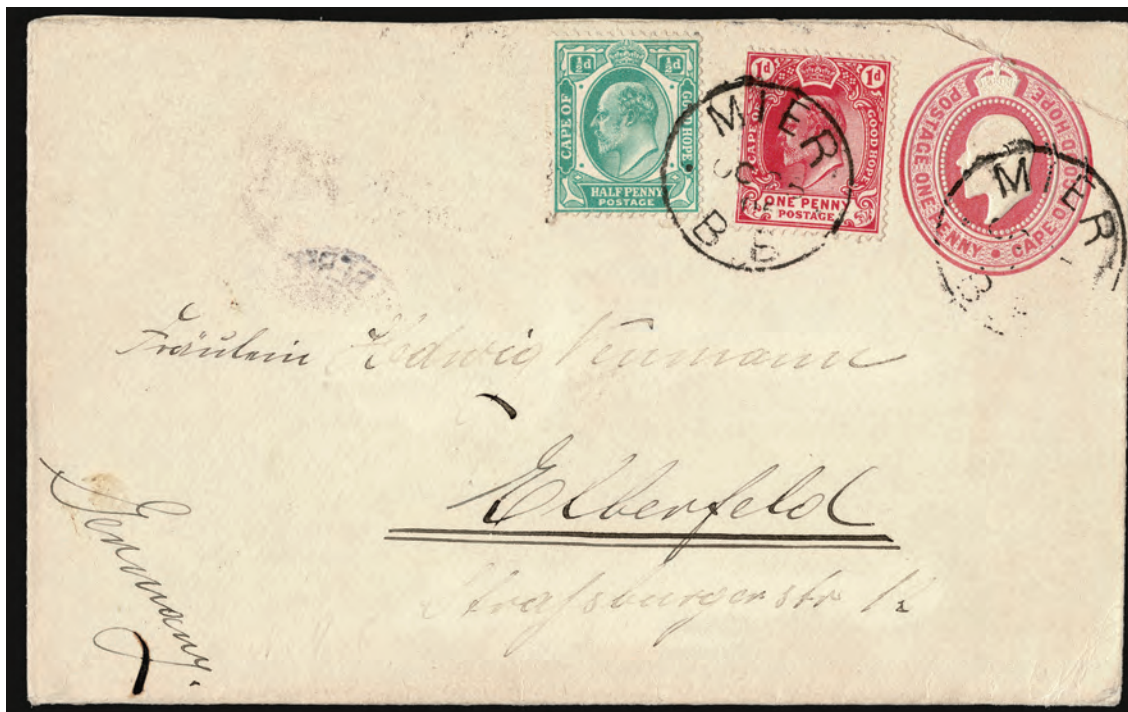 ½d ½d
CAPE OF GOOD HOPE
HALF PENNY
POSTAGE
1d 1d
CAPE OF GOOD HOPE
ONE PENNY
POSTAGE
POSTAGE ONE PENNY • CAPE OF GOOD HOPE
MIER
B.B
MIER
Fräulein Hedwig Neumann
Elberfeld
Straßburgerstr
Germany.